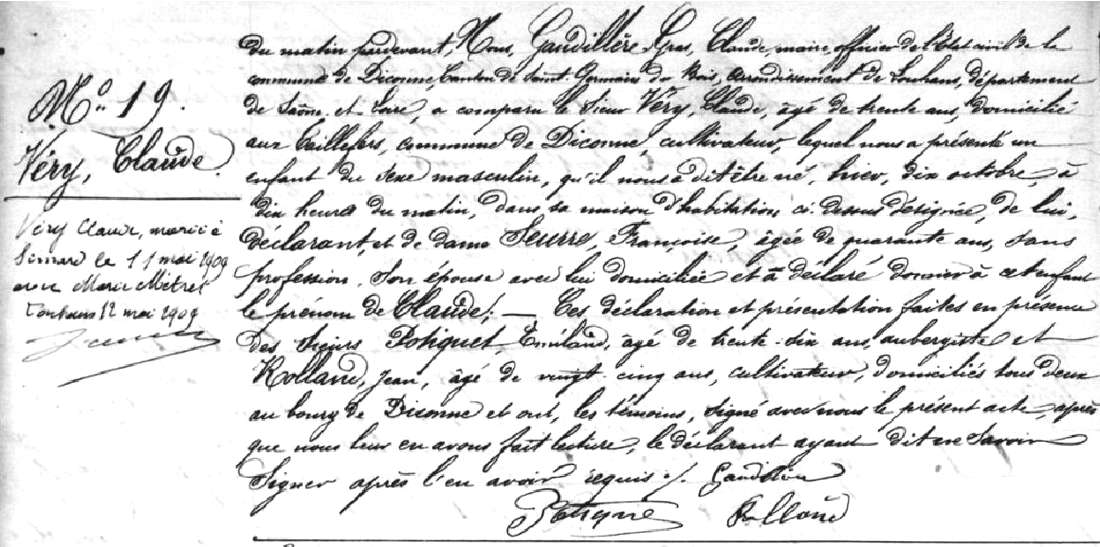 N° 19.
Véry, Claude.
Véry Claude, marié à
Simard le 11 mai 1909
avec Marie Métrat
Louhans 12 mai 1909
du matin pardevant, Nous, Gaudillère-Gras, Claude, maire, officier de l'Etat civil de la
commune de Diconne, Canton de Saint-Germain du Bois, Arrondissement de Louhans, département
de Saône-et-Loire, a comparu le Sieur Véry, Claude, âgé de trente ans, domicilié
aux Taillefers, commune de Diconne, cultivateur, lequel nous a présenté un
enfant du sexe masculin, qu'il nous a dit être né, hier, dix octobre, à
dix heures du matin, dans sa maison d'habitation ci-dessus désignée, de lui,
déclarant, et de dame Seurre, Françoise, âgée de quarante ans, sans
profession, son épouse avec lui domiciliée et a déclaré donner à cet enfant
le prénom de Claude; — Ces déclaration et présentation faites en présence
des Sieurs Potiquet, Emiland, âgé de trente-six ans, aubergiste et
Rolland, Jean, âgé de vingt cinq ans, cultivateur, domiciliés tous deux
au bourg de Diconne et ont, les témoins, signé avec nous le présent acte, après
que nous leur en avons fait lecture, le déclarant ayant dit ne savoir
Signer après l'en avoir requis ./.
Rolland